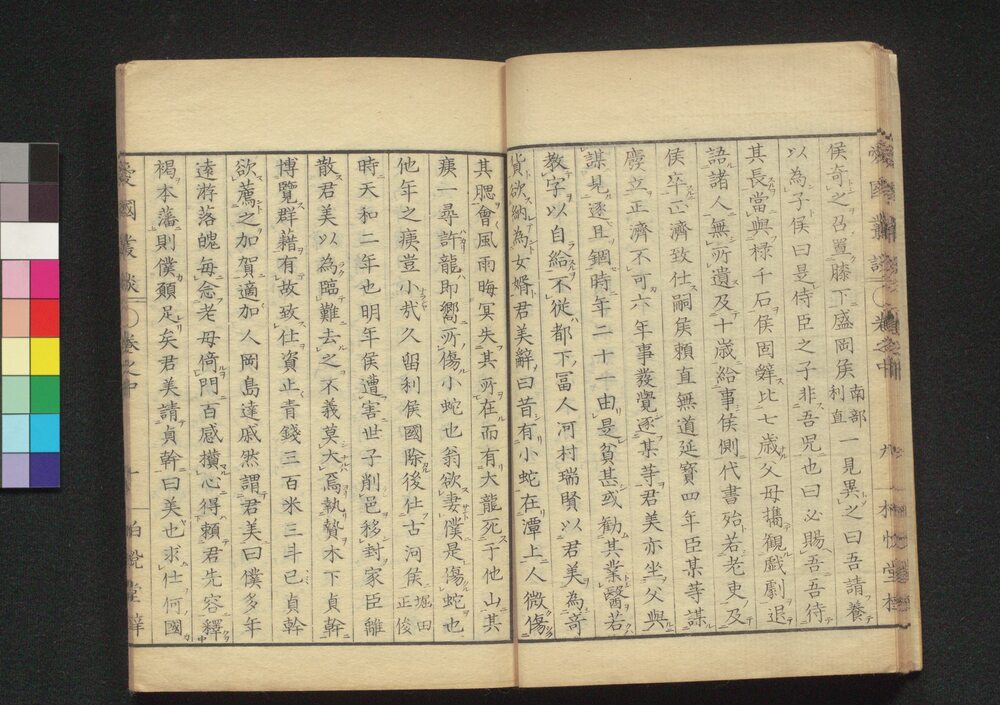 侯奇之召置膝下盛岡侯南部利直一見異之曰吾請養
以為子侯曰是侍臣之子非吾児也曰必賜吾吾待
其長當與禄千石侯固辭比七歳父母攜観戯劇退
語諸人無所遺及十歳給事侯側代書殆若老吏及
侯卒正濟致仕嗣侯頼直無道延寶四年臣某等謀
廢立正濟不可六年事發覺逐某等君美亦坐父與
謀見逐且錮時年二十一由是貧甚或勸其業醫若
教字以自給不従都下冨人河村瑞賢以君美為奇
貨欲納為女婿君美辭曰昔有小蛇在潭上人微傷
其腮會風雨晦冥失其所在而有大龍死于他山其
痍一尋許龍即嚮所傷小蛇也翁欲妻僕是傷蛇也
他年之痍豈小哉久留利侯國除後仕古河侯堀田正俊
時天和二年也明年侯遭害世子削邑移封家臣離
散君美以為臨難去之不義莫大焉執贄木下貞幹
博覽群藉有故致仕資止青錢三百米三斗已貞幹
欲薦之加賀適加人岡島達戚然謂君美曰僕多年
遠游落魄毎念老母倚門百感攢心得頼君先容釋
褐本藩則僕願足矣君美請貞幹曰美也求仕何國
愛國叢談 〇卷之中 十